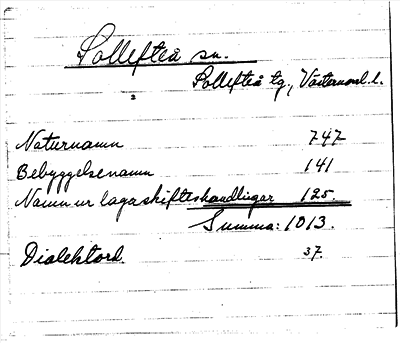 Sollefteå sn.
Sollefteå tg., Västernorrl. l.
2
Naturnamn 747
Bebyggelsenamn 141
Namn ur lagaskifteshandlingar 125.
Summa: 1013.
Dialektord. 37.